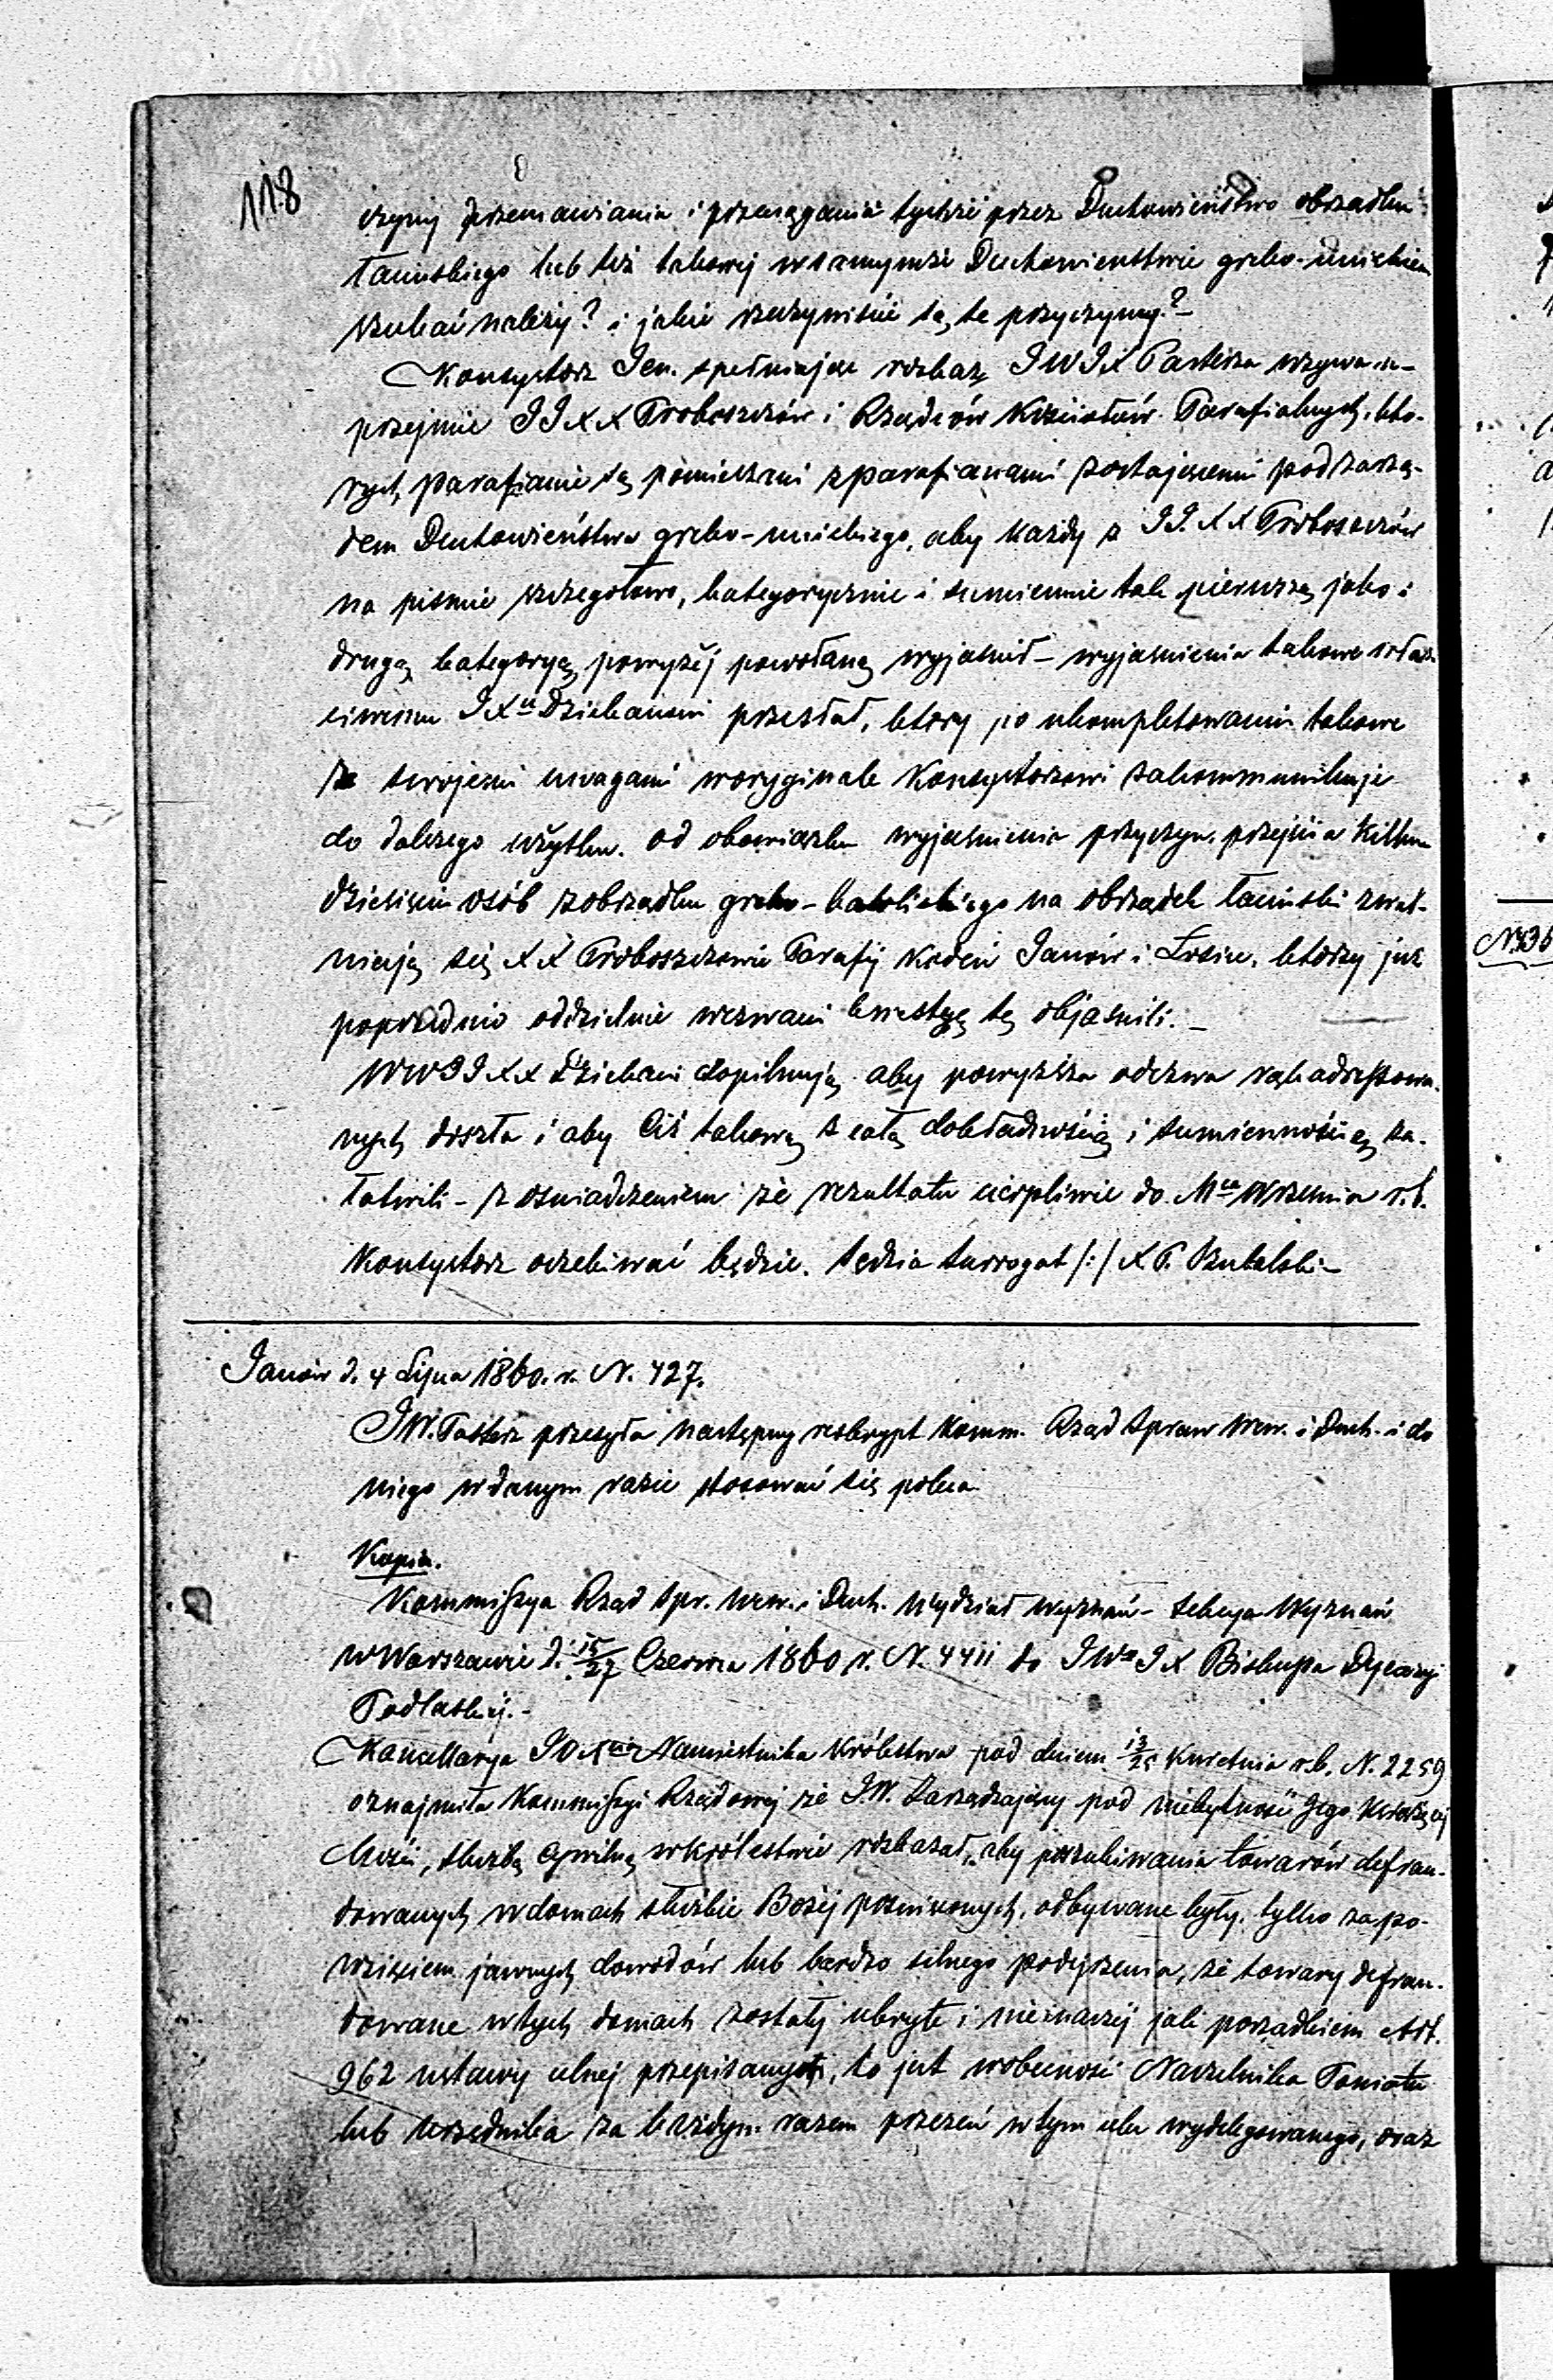 118
czyny przemawiania i przeciągania tychże przez Duchowieństwo obrządku
łacińskiego lub też takowej w samymże Duchowieństwie greko-unickiem
szukać należy? i jakie rzeczywiście są te przyczyny?-
Konsystorz Jen. spełniając rozkaz JWJX Pasterza wzywa u-
przejmie JJXX Proboszczów i Rządców Kościołów Parafialnych, któ-
rych parafianie są pomieszani z parafianami zostającemi pod zarzą-
dem Duchowieństwa greko-unickiego, aby każdy z JJ.XX Proboszczów
na piśmie szczegółowo, kategorycznie i sumiennie tak pierwszą jako i
drugą kategoryą powyżej powołaną wyjaśnił - wyjaśnienia takowe właś-
ciwemu JXu Dziekanowi przesłał, który po ukompletowaniu takowe
ze swojemi uwagami w oryginale Konsystorzowi zakommunikuje
do dalszego użytku. Od obowiązku wyjaśnienia przyczyn przejścia kilku
dziesięciu osób z obrządku greko-katolickiego na obrządek łaciński zwal-
niają się XX Proboszczowie Parafij Kodeń Janów i Łosice, którzy już
poprzednio oddzielnie wezwani kwestyę tę objaśnili. -
WWJJXX Dziekani dopilnują aby powyższa odezwa rąk adressowa-
nych doszła i aby Ciż takową z całą dokładnością i sumiennością za-
łatwili - z oświadczeniem że rezultatu cierpliwie do Mca Września r.b.
Konsystorz oczekiwać będzie. Sędzia Surrogat /:/ X P.
Janów d. 4 Lipca 1860. r. N. 427.
JW. Pasterz przesyła następny reskrypt Komm. Rząd Spraw Wew. i Duch. i do
niego w danym razie stosować się poleca
Kopia.
Kommissya Rząd Spr. Wew. i Duch. Wydział Wyznań - Sekcya Wyznań
w Warszawie d. 15/27 Czerwca 1860 r. N. 4411 do JWo JX Biskupa Dyecezyi
Podlaskiej. -
Kancellarya JO Namiestnika Królestwa pod dniem 13/25 Kwietnia r.b. N. 2259
oznajmiła Kommissyi Rządowej że JW. Zarządzający pod niebytność Jego Książęcej
Mości, służbą cywilną w Królestwie rozkazał, "aby poszukiwania towarów defrau-
dowanych w domach służbie Bożej poświęconych, odbywane były, tylko za po-
wzięciem jawnych dowodów lub bardzo silnego podejrzenia, że towary defrau-
dowane w tych domach zostały ukryte i nieinaczej jak porządkiem Art.
962 ustawy celnej przepisanym, to jest w obecność Naczelnika Powiatu
lub urzędnika za każdym razem przezeń w tym celu wydelegowanego, oraz